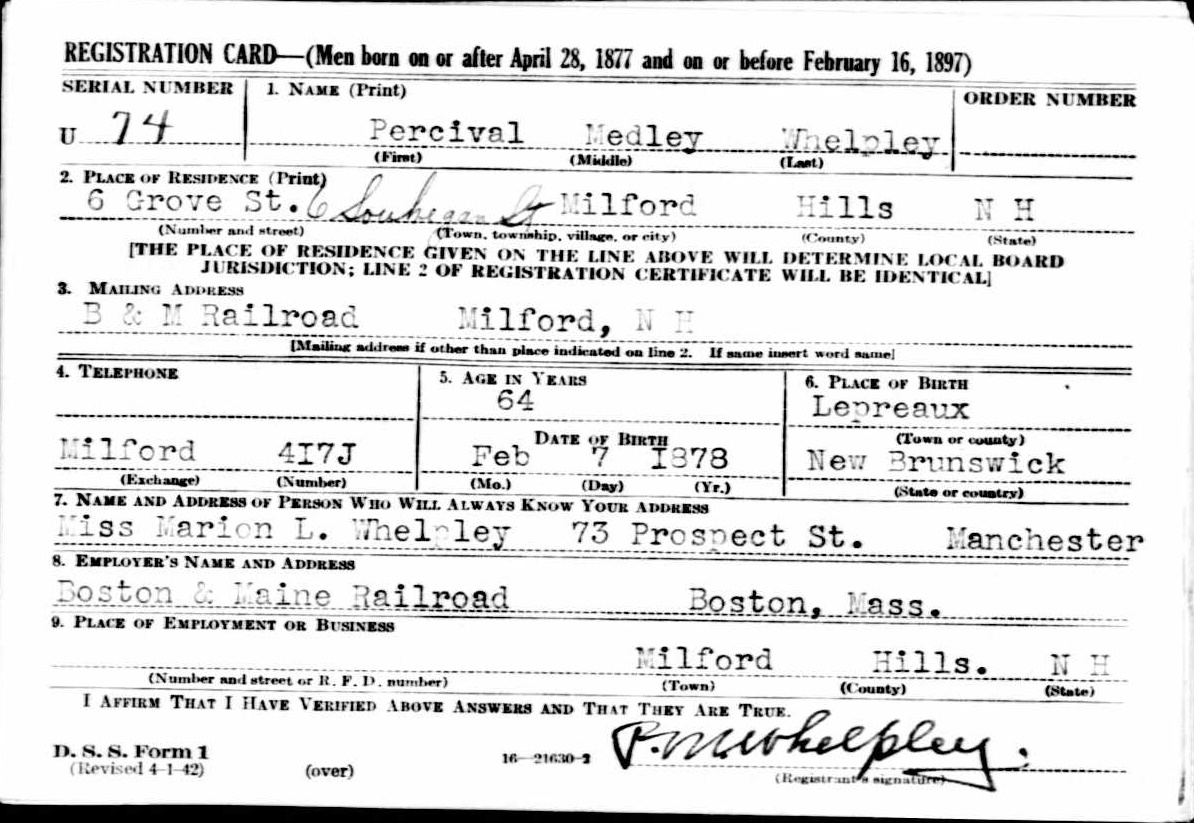 REGISTRATION CARD—(Men born on or after April 28, 1877 and on or before February 16, 1897)
SERIAL NUMBER 1. NAME (Print) ORDER NUMBER
U 74 Percival Medley Whelpley
(First) (Middle) (Last)
2. PLACE OF RESIDENCE (Print)
6 Grove St. 6 Souhegan St Milford Hills N H
(Number and street) (Town, township, village, or city) (County) (State)
[THE PLACE OF RESIDENCE GIVEN ON THE LINE ABOVE WILL DETERMINE LOCAL BOARD
JURISDICTION; LINE 2 OF REGISTRATION CERTIFICATE WILL BE IDENTICAL]
3. MAILING ADDRESS
B & M Railroad Milford, N H
[Mailing address if other than place indicated on line 2. If same insert word same]
4. TELEPHONE 5. AGE IN YEARS 6. PLACE OF BIRTH
64 Lepreaux
DATE OF BIRTH (Town or county)
Milford 4I7J Feb 7 I878 New Brunswick
(Exchange) (Number) (Mo.) (Day) (Yr.) (State or country)
7. NAME AND ADDRESS OF PERSON WHO WILL ALWAYS KNOW YOUR ADDRESS
Miss Marion L. Whelpley 73 Prospect St. Manchester
8. EMPLOYER'S NAME AND ADDRESS
Boston & Maine Railroad Boston, Mass.
9. PLACE OF EMPLOYMENT OR BUSINESS
Milford Hills. N H
(Number and street or R. F. D. number) (Town) (County) (State)
I AFFIRM THAT I HAVE VERIFIED ABOVE ANSWERS AND THAT THEY ARE TRUE.
P. M. Whelpley.
D. S. S. Form 1
(Revised 4-1-42) (over) 16—21630-2 (Registrant's signature)